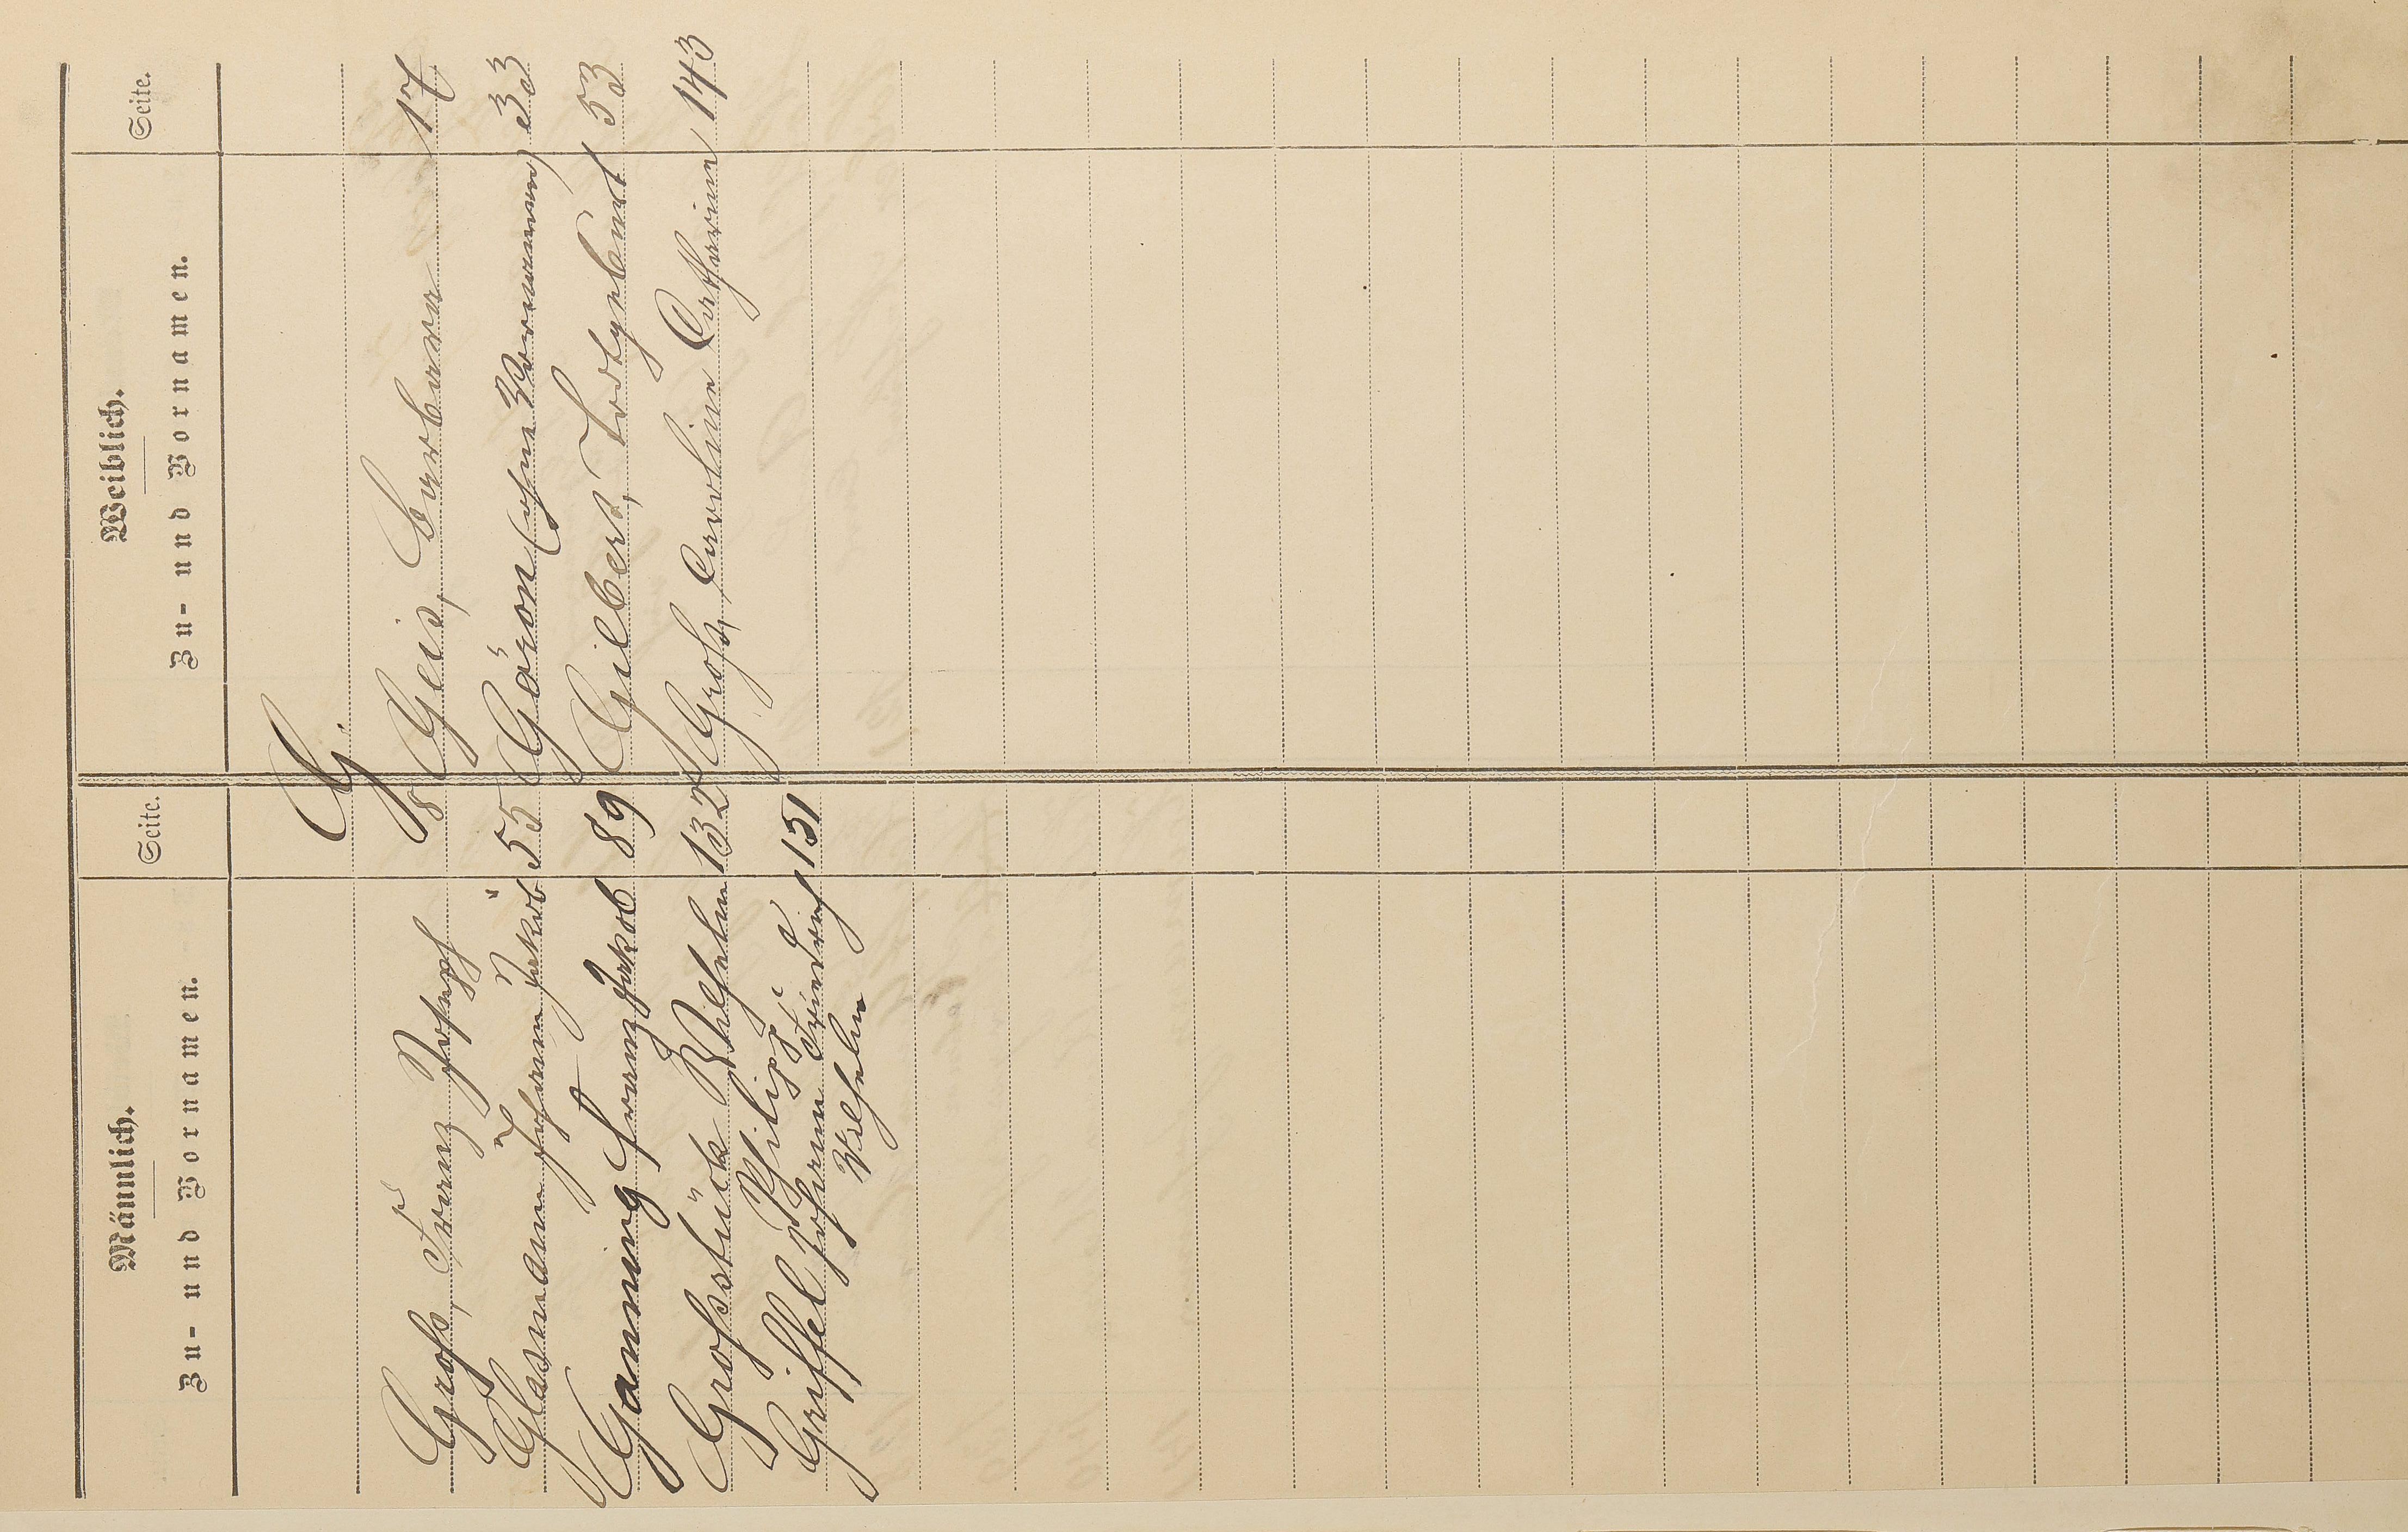 Männlich.
Zu- und Vornamen.
Seite.
Weiblich.
Zu- und Vornamen.
Seite.
G.
Groß, Franz Joseph 8
Geis, Barbara 17
Glasmann Johann Jakob 55
Göron (ohne Vornamen) 33
Ganning Franz Jakob 89
Gilbert, Todtgeburt 53
Großstück Wilhelm 132
Groß, Caroline Catharine 143
Griffel Philipp
Johann Friedrich 151
Wilhelm